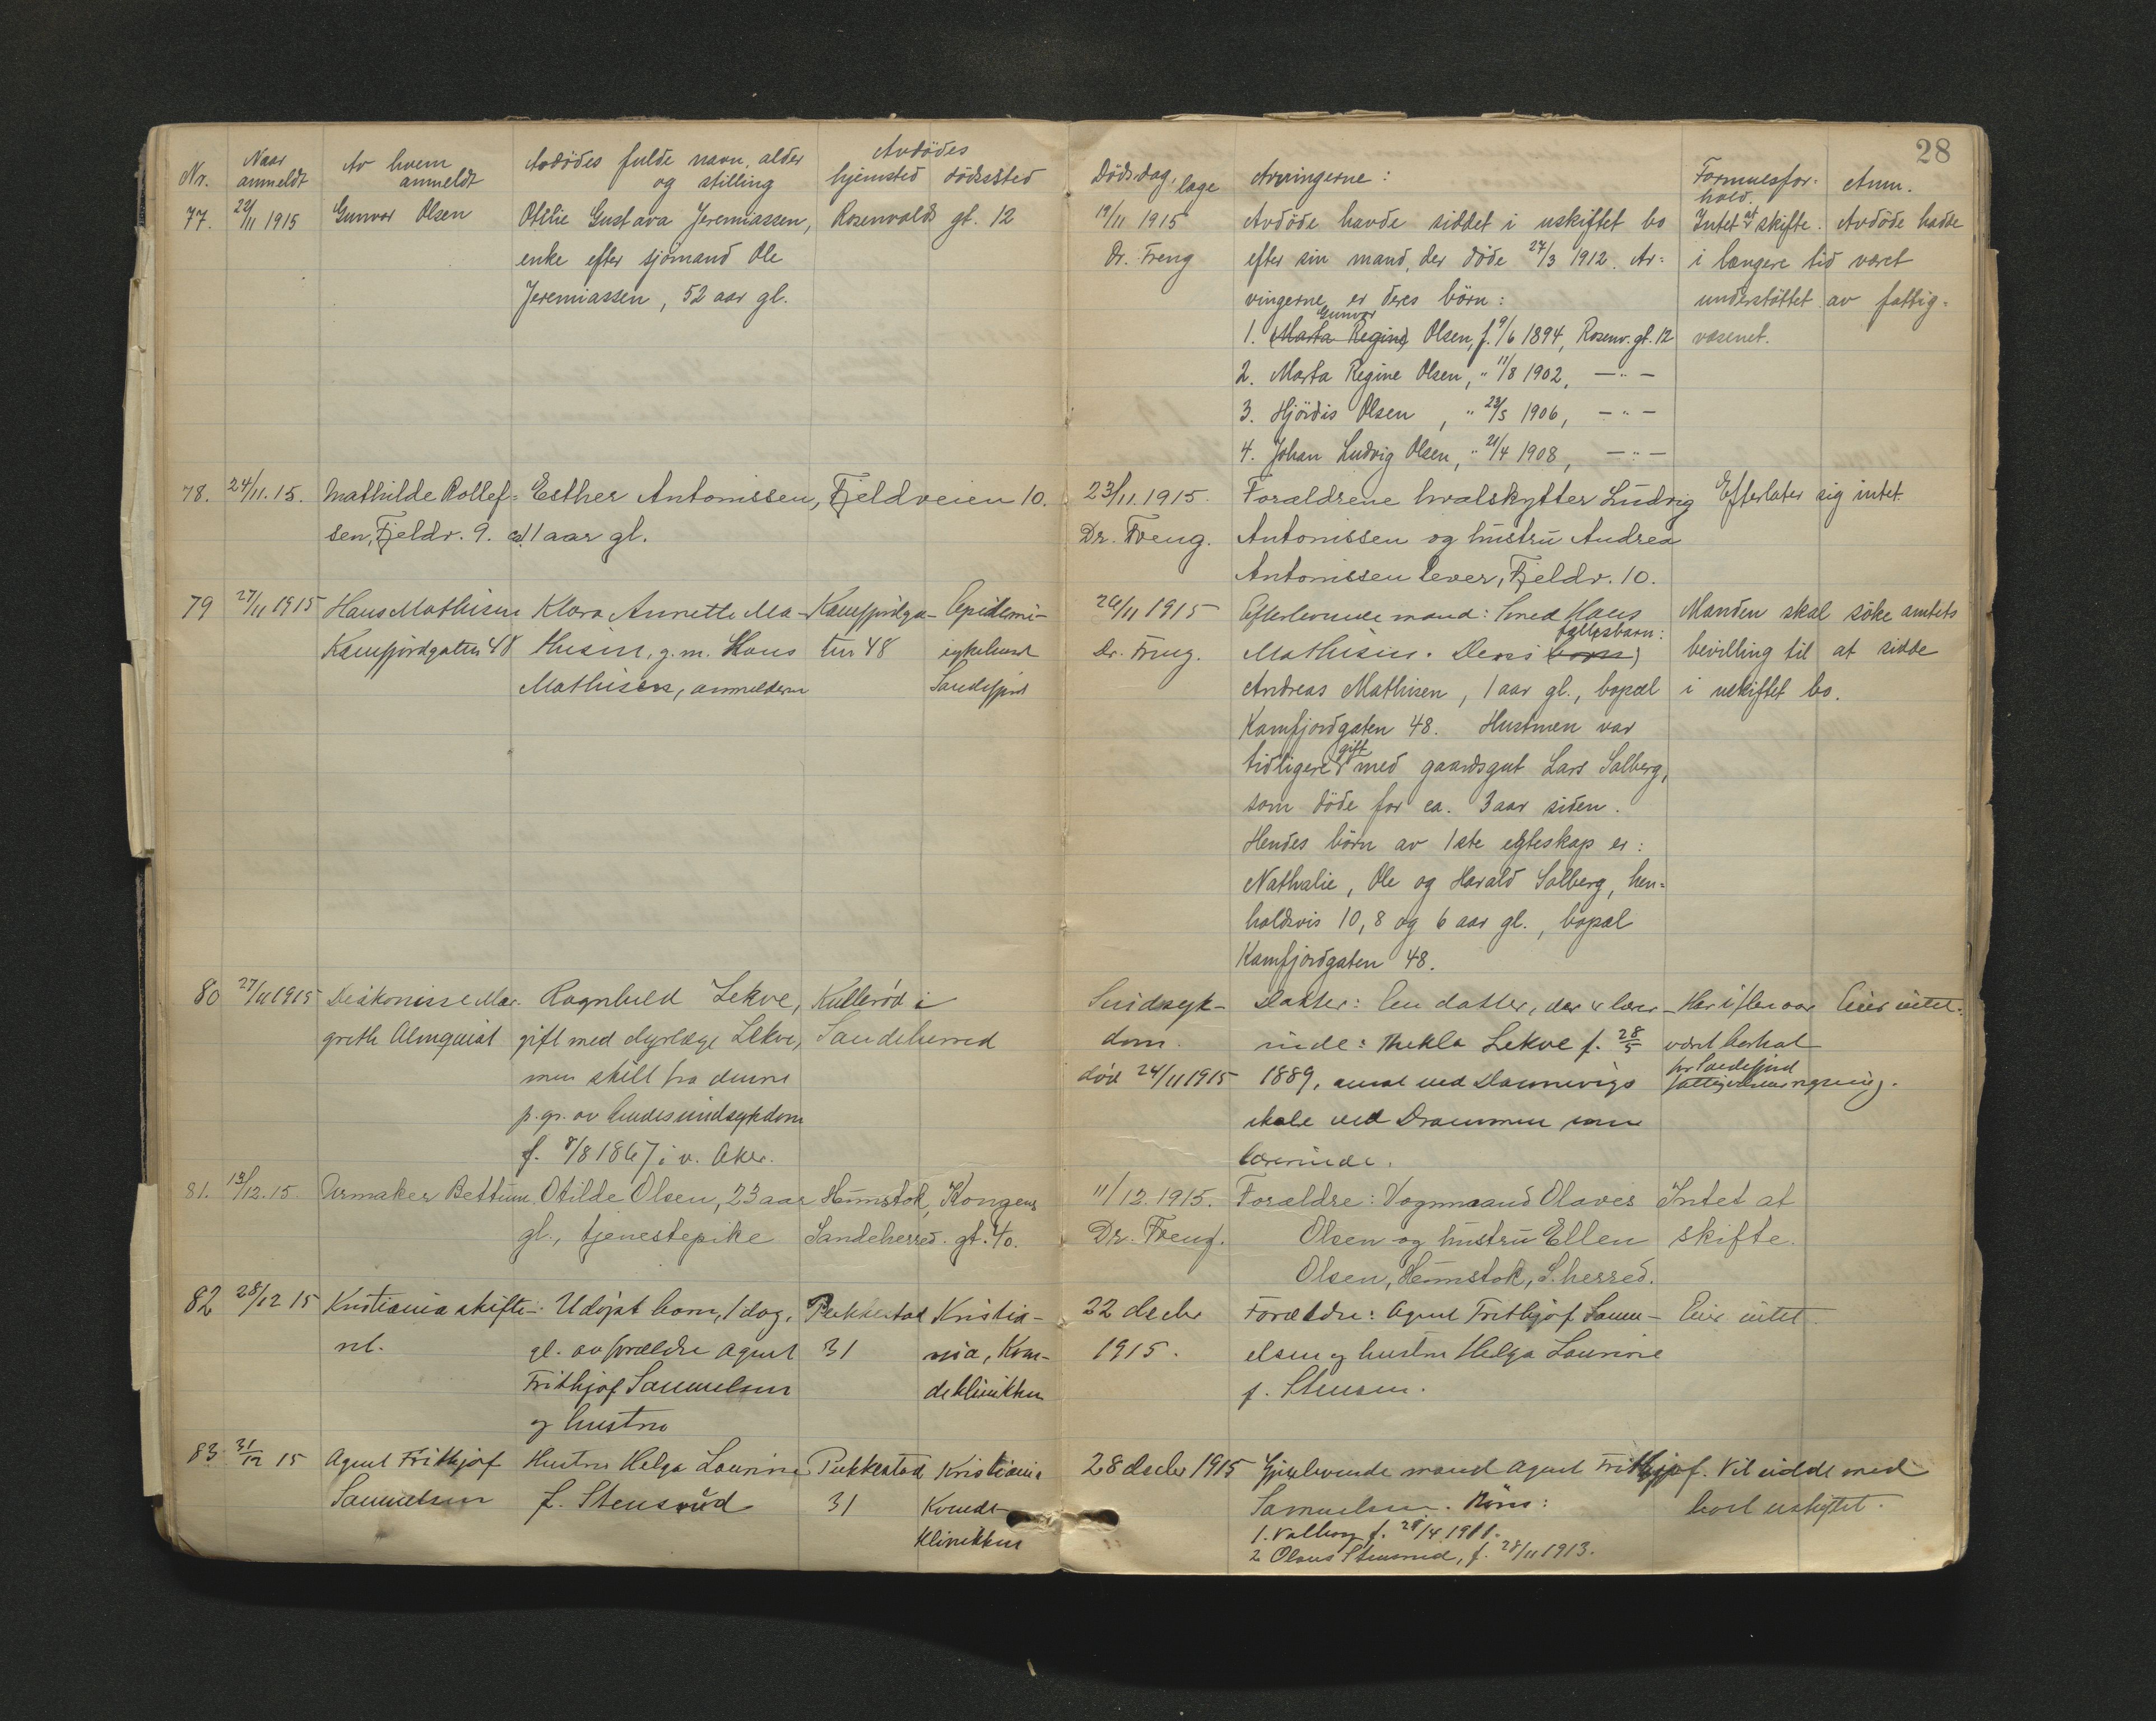 28
Nr. Naar anmeldt Av hvem anmeldt Avdödes fulde navn, alder og stilling Avdödes hjemsted dödssted Dödsdag, læge Arvingerne: Formuesforhold. Anm.
77. 22/11 1915 Gunvor Olsen Otilie Gustava Jeremiassen, Rosenvolds gt. 12
enke efter sjömand Ole
Jeremiassen, 52 aar gl.
19/11 1915
Dr. Freng
Avdöde havde siddet i uskiftet bo
efter sin mand, der döde 27/3 1912. Ar-
vingerne er deres börn:
1. (Marta Regine) Gunvor Olsen, f. 9/6 1894, Rosenv. gt. 12
2. Marta Regine Olsen, " 11/8 1902, — " —
3. Hjördis Olsen, " 23/5 1906, — " —
4. Johan Ludvig Olsen, " 21/4 1908, — " —
Intet at skifte. Avdöde hadde
i længere tid været
understöttet av fattig-
væsenet.
78. 24/11. 15. Mathilde Rollef- Esther Antonissen, Fjeldveien 10.
sen, Fjeldv. 9. ca. 11 aar gl.
23/11. 1915.
Dr. Freng.
Forældrene hvalskytter Ludvig
Antonissen og hustru Andrea
Antonissen lever, Fjeldv. 10.
Efterlater sig intet.
79 27/11 1915 Hans Mathisen Klara Annette Ma- Kamfjordga- Epidemi-
Kamfjordgaten 48 thisen, g. m. Hans ten 48 sykehuset
Mathisen, anmelderen Sandefjord
26/11 1915
Dr. Freng.
Efterlevende mand: Smed Hans
Mathisen. Deres (börn) fællesbarn:
Andreas Mathisen, 1 aar gl., bopæl
Kamfjordgaten 48. Hustruen var
tidligere gift med gaardsgut Lars Solberg,
som döde for ca. 3 aar siden.
Hendes börn av 1ste egteskap er:
Nathalie, Ole og Harald Solberg, hen-
holdsvis 10, 8 og 6 aar gl., bopæl
Kamfjordgaten 48.
Manden skal söke amtets
bevilling til at sidde
i uskiftet bo.
80 27/11 1915 Diakonisse Mar- Ragnhild Lekve, Kullerød i
grethe Almquist gift med dyrlæge Lekve, Sandeherred
men skilt fra denne
p. gr. av hendes sindsykdom
f. 8/8 1867 i v. Aker.
Sindsyk-
dom.
död 24/11 1915
Datter: En datter, der er lærer-
inde: Thekla Lekve f. 28/5
1889, ansat ved Dannevigs
skole ved Drammen som
lærerinde.
Har i flere aar
været
for Sandefjord
fattigvæsens regning.
Eier intet.
81. 13/12. 15. Urmaker Bettum. Otilde Olsen, 23 aar Hunstok, Kongens
gl., tjenestepike Sandeherred. gt. 40.
11/12. 1915.
Dr. Freng.
Forældre: Vognmand Olaves
Olsen og hustru Ellen
Olsen, Hunstok, S.herred.
Intet at
skifte.
82 28/12 15 Kristiania skifte- Udöpt barn, 1 dag. Pukkestad Kristia-
ret. gl. av forældre agent 31 nia, Kvin-
Frithjof Samuelsen deklinikken
og hustru
22 decbr
1915.
Forældre: Agent Frithjof Samu-
elsen og hustru Helga Lovrine
f. Stensrud.
Eier intet.
83 31/12 15 Agent Frithjof Hustru Helga Lovrine Pukkestad Kristiania
Samuelsen f. Stensrud 31 Kvinde-
klinikken
28 decbr 1915 Gjenlevende mand agent Frithjof
Samuelsen. Börn:
1. Valborg f. 28/4 1911.
2 Olaus Stensrud, f. 28/11 1913.
Vil sidde med
boet uskiftet.